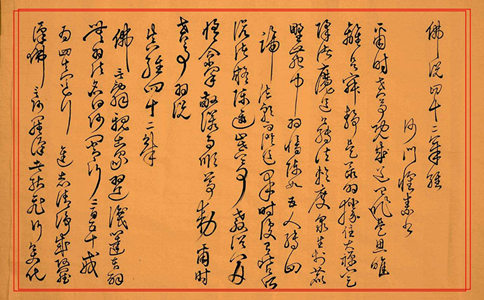 佛說四十二章經
沙門懷素書
爾時世尊既成道已作是思惟
離欲寂靜是最為勝住大禪定
降諸魔道轉法輪度眾生於鹿
野苑中為憍陳如五人轉四
諦法輪而證道果時復有比丘
所說諸疑陳進止世尊教詔
悟合掌敬諾而順尊勅爾時
世尊為說
真經四十二章
佛言辭親出家為道識心達本解
無為法名曰沙門常行二百五十戒
為四真道行進志清淨成阿羅
漢佛言阿羅漢者能飛行變化